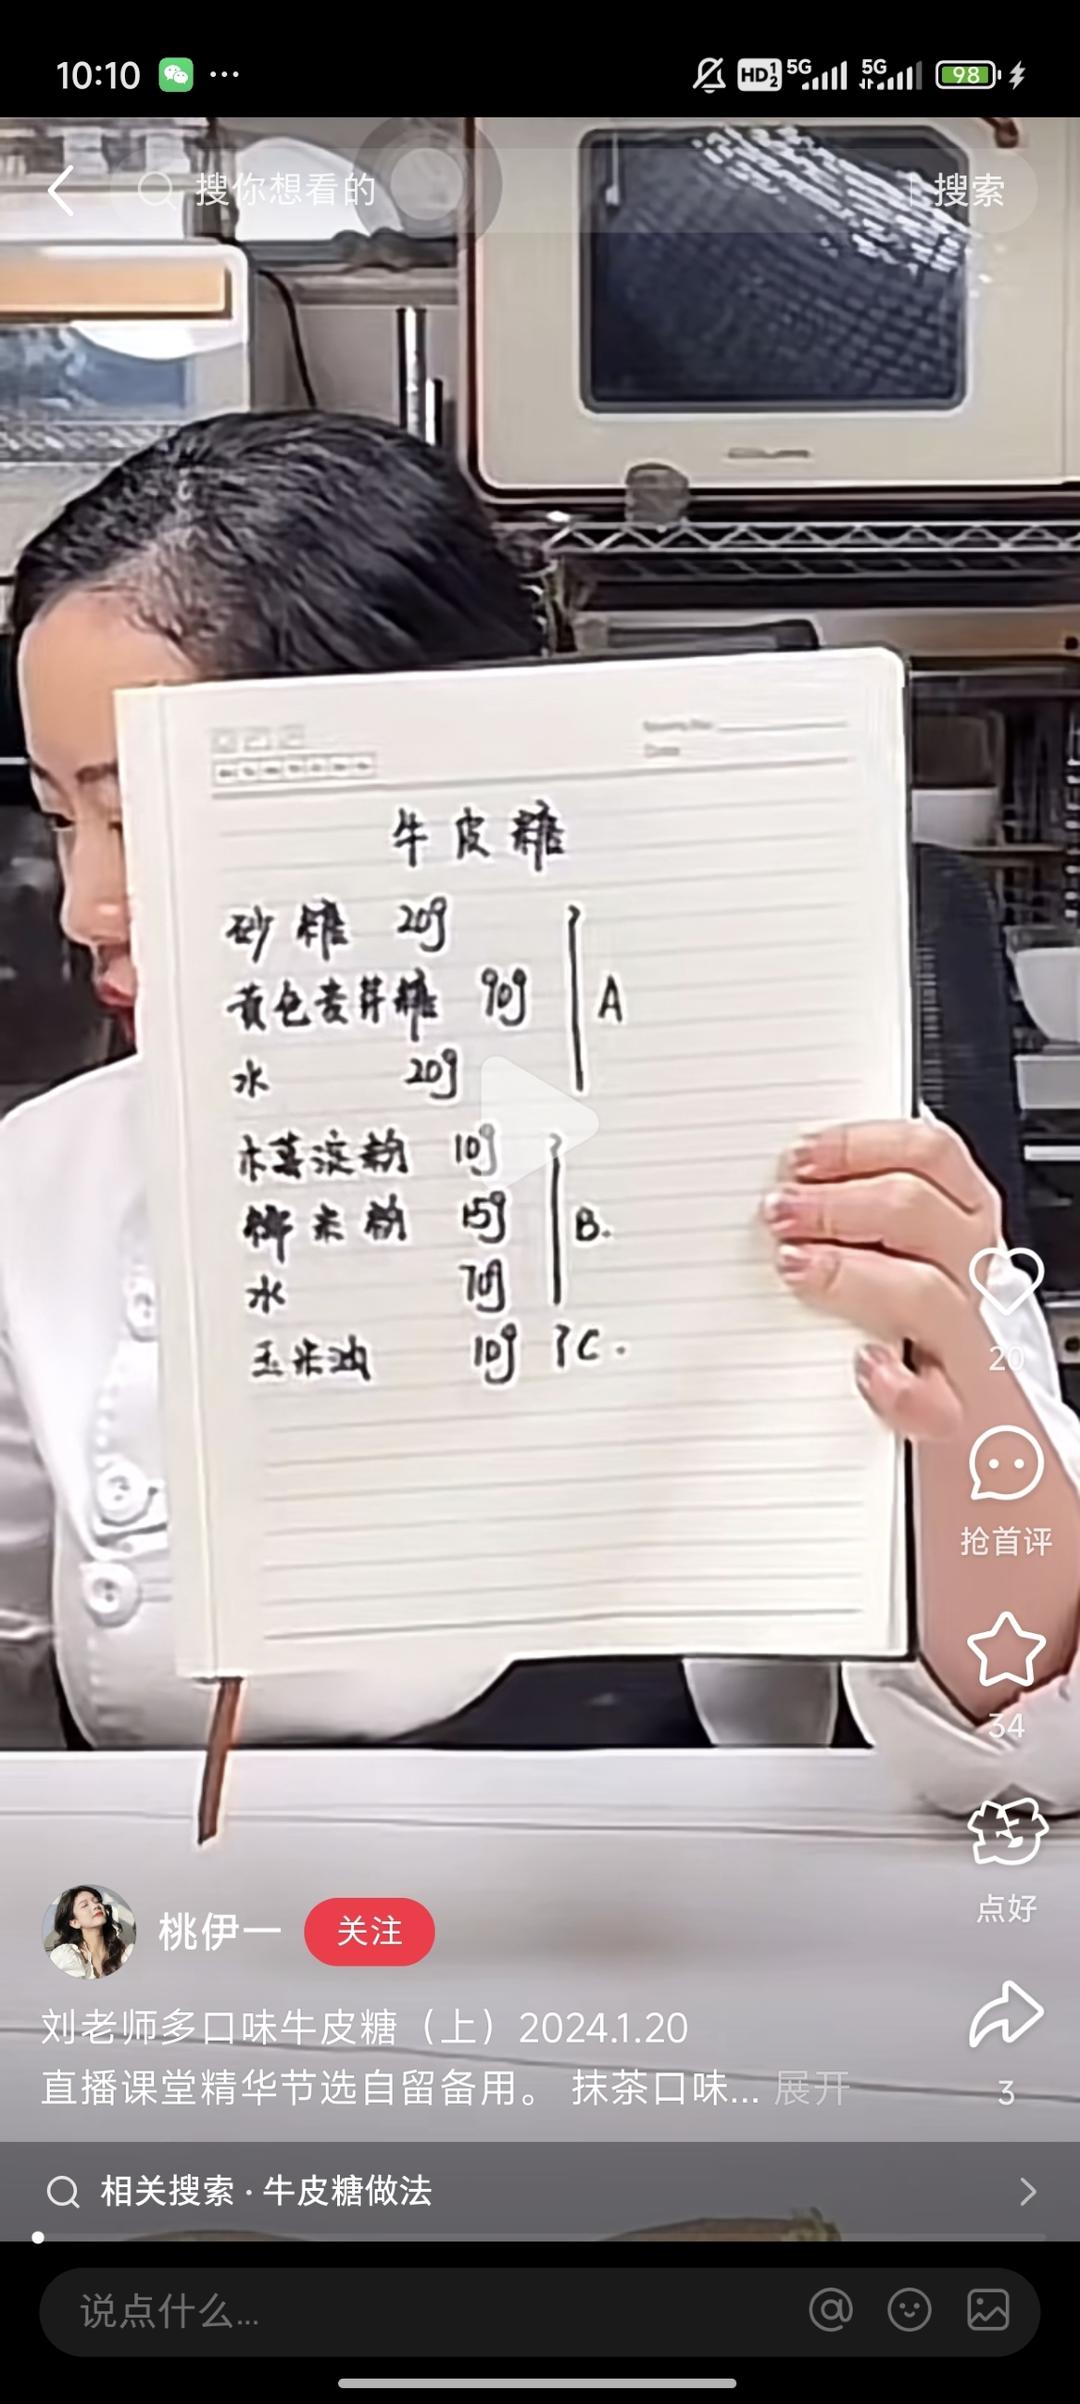 10:10 ...
HD 1 2 5G 5G 98
搜你想看的 搜索
牛皮糖
砂糖 20g
黄色麦芽糖 90g A
水 20g
木薯淀粉 10g
糯米粉 15g B.
水 70g
玉米油 10g C.
20
抢首评
34
点好
桃伊一 关注
刘老师多口味牛皮糖（上）2024.1.20
直播课堂精华节选自留备用。 抹茶口味... 展开
3
相关搜索 · 牛皮糖做法
说点什么...